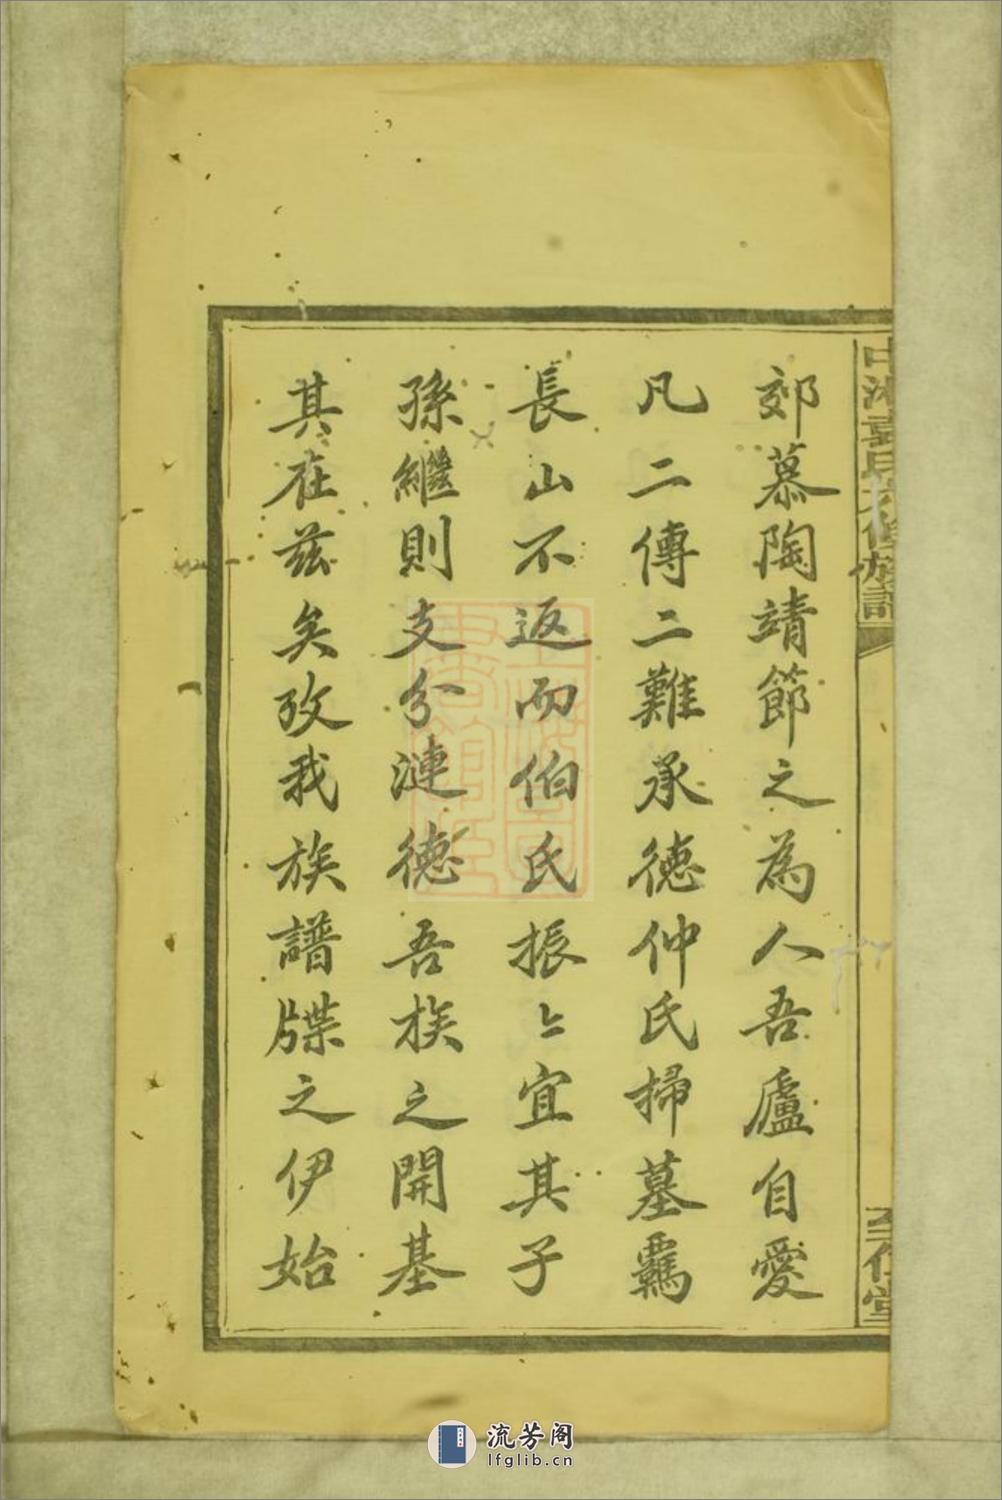 郊慕陶靖節之為人吾廬自愛
凡二傳二難承德仲氏掃墓羈
長山不返而伯氏振〻宜其子
孫繼則支分漣德吾族之開基
其在茲矣攷我族譜牒之伊始
中湘袁氏六修族譜
至仁堂
流芳阁
lfglib.cn